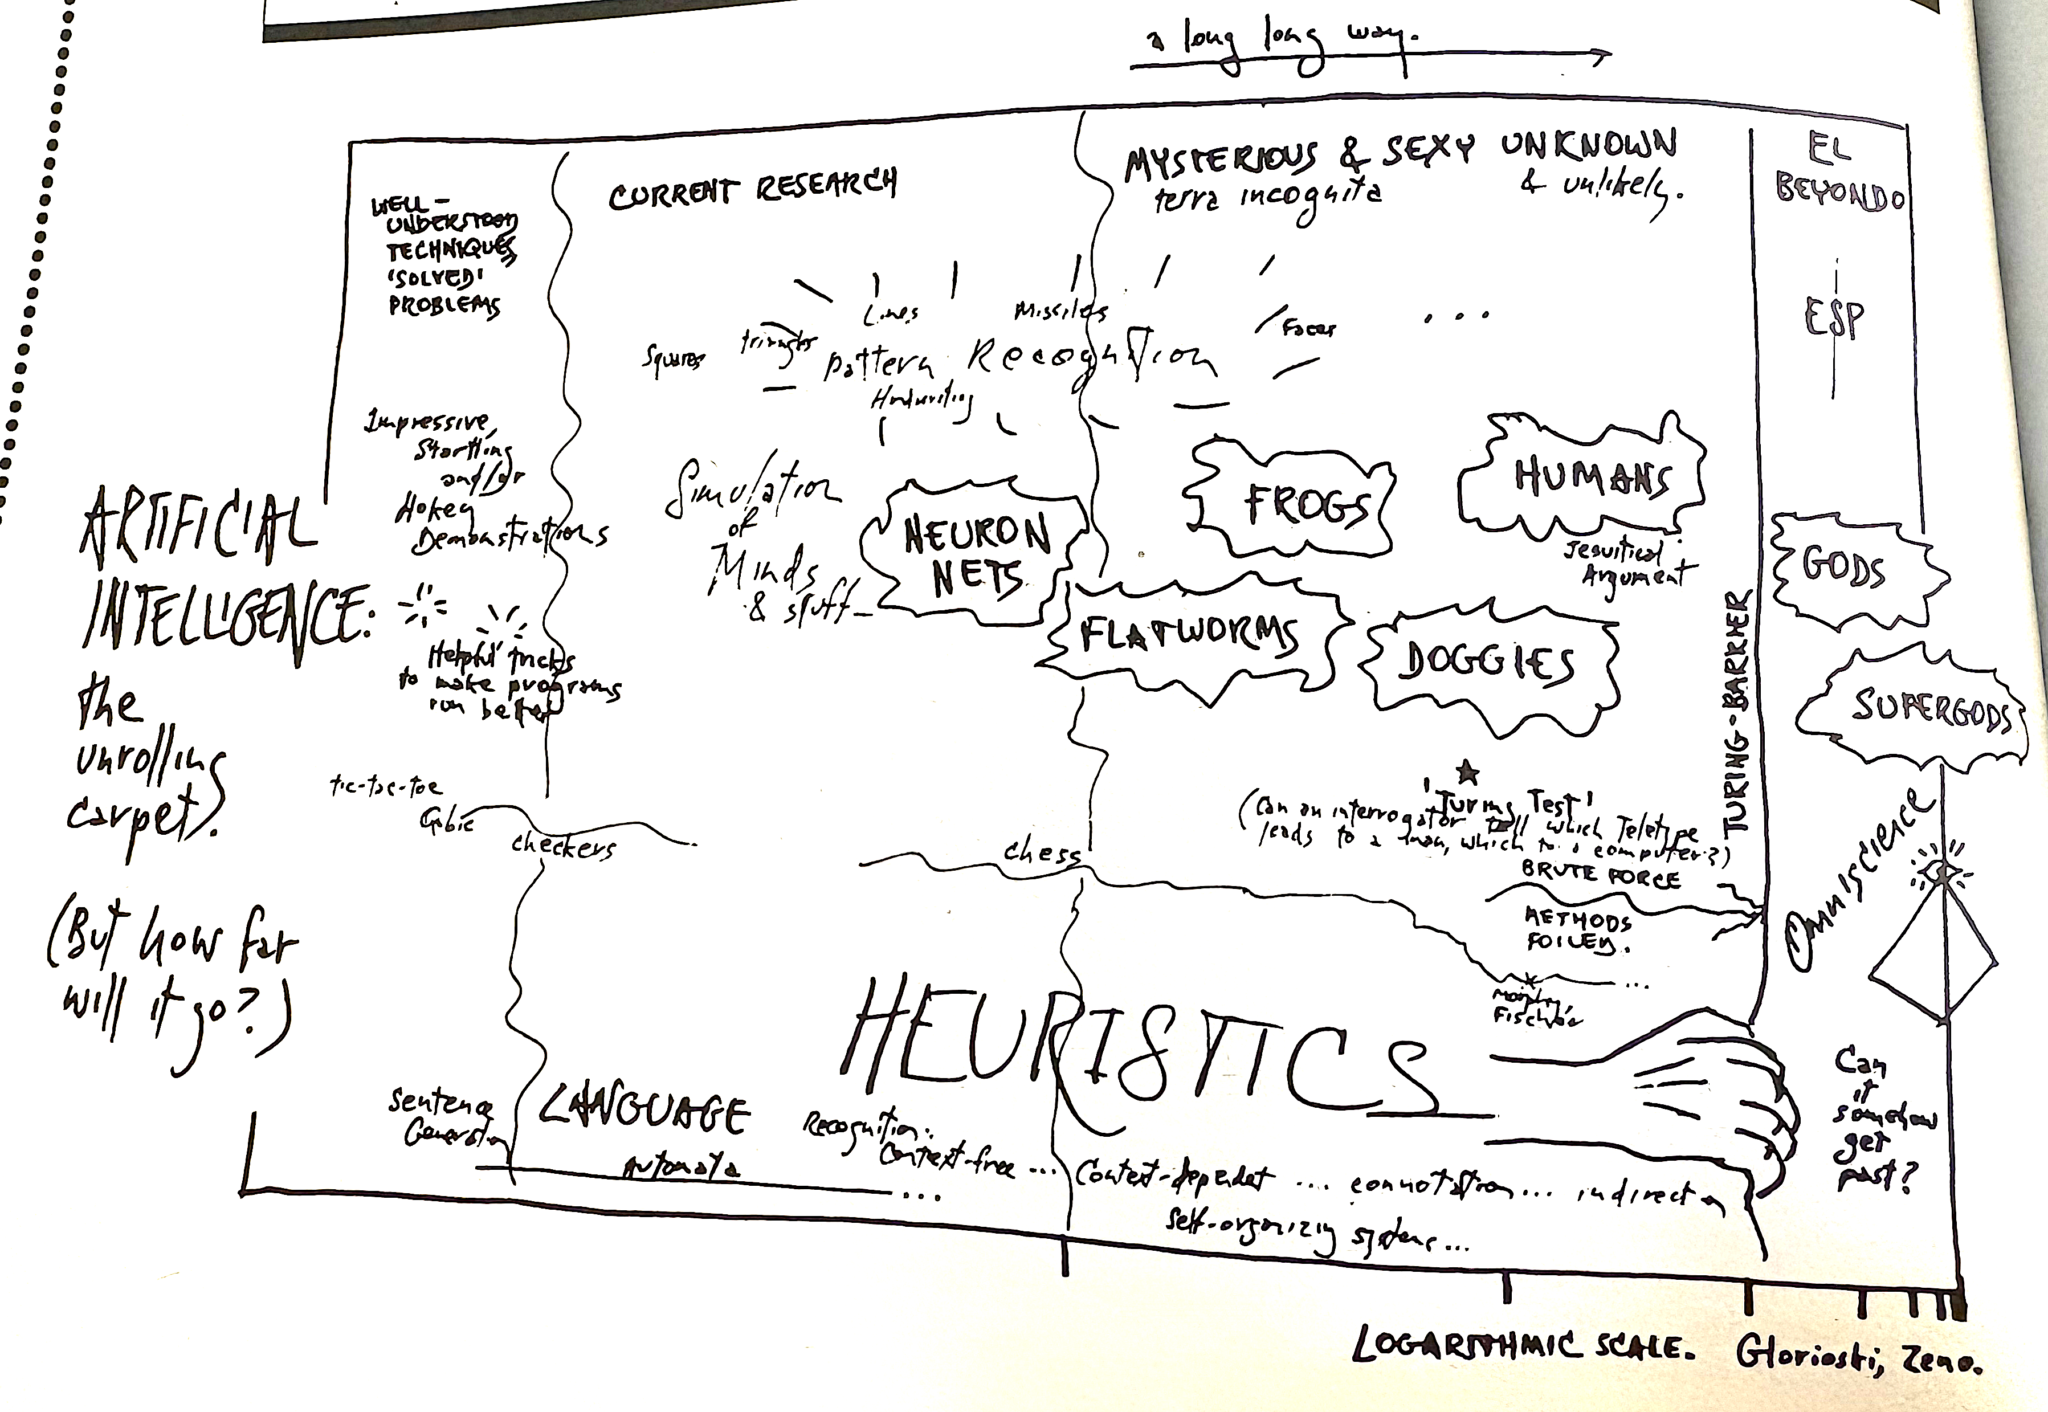 a long long way.
WELL-
UNDERSTOOD
TECHNIQUES,
'SOLVED'
PROBLEMS
CURRENT RESEARCH
MYSTERIOUS & SEXY UNKNOWN
terra incognita & unlikely.
EL
BEYONDO
ESP
Squares
triangles
Lines
Missiles
Faces
...
Pattern Recognition
Handwriting
Impressive,
Startling
and/or
Hokey
Demonstrations
Simulation
of
Minds
& stuff—
NEURON
NETS
FROGS
HUMANS
Jesuitical
Argument
FLATWORMS
DOGGIES
GODS
SUPERGODS
ARTIFICIAL
INTELLIGENCE:
the
unrolling
carpet.
(But how far
will it go?)
Helpful tricks
to make programs
run better
TURING-BARRIER
tic-tac-toe
Qubic
checkers
chess
'Turing Test'
(Can an interrogator tell which Teletype
leads to a man, which to a computer?)
BRUTE FORCE
METHODS
FOILED.
Omniscience
Morphy,
Fischer
HEURISTICS
Can
it
somehow
get
past?
Sentence
Generation
LANGUAGE
Automata
...
Recognition:
Context-free ...
Context-dependent ... connotation ... indirection
Self-organizing systems...
LOGARITHMIC SCALE. Glorioski, Zeno.